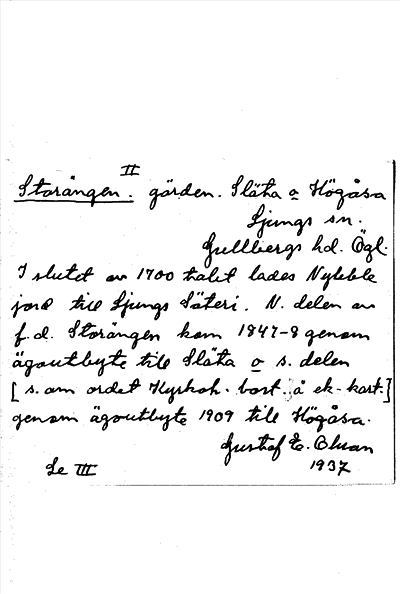 II
Storängen. gärden. Släta o Högåsa
Ljungs sn.
Gullbergs hd. Ögl.
I slutet av 1700 talet lades Nykeble
jord till Ljungs Säteri. N. delen av
f.d. Storängen kom 1847-8 genom
ägoutbyte till Släta o s. delen
[s. om ordet Kyrkoh. bost. å ek-kart.]
genom ägoutbyte 1909 till Högåsa.
Gustaf E.
1937
Se III